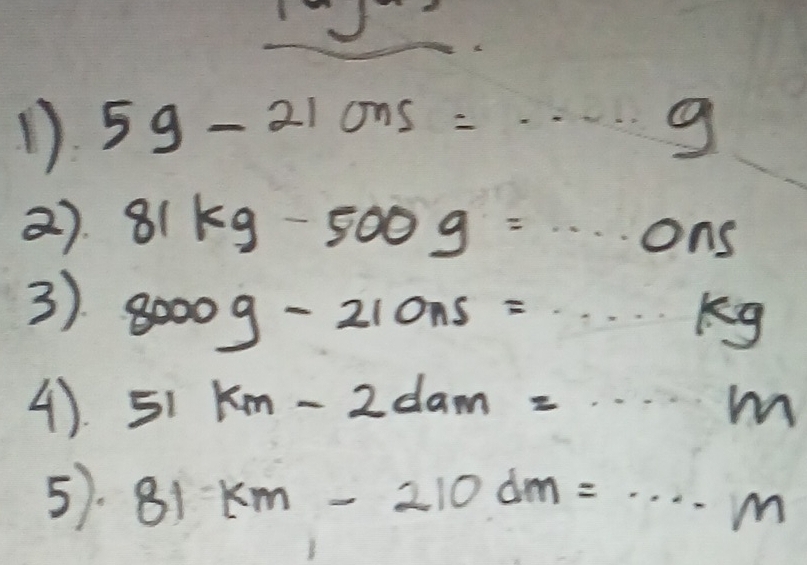 1). 5 g - 21 ons = ...... g
2). 81 kg - 500 g = ..... ons
3). 8000 g - 21 Ons = ...... kg
4). 51 Km - 2 dam = ..... m
5). 81 Km - 210 dm = .... m